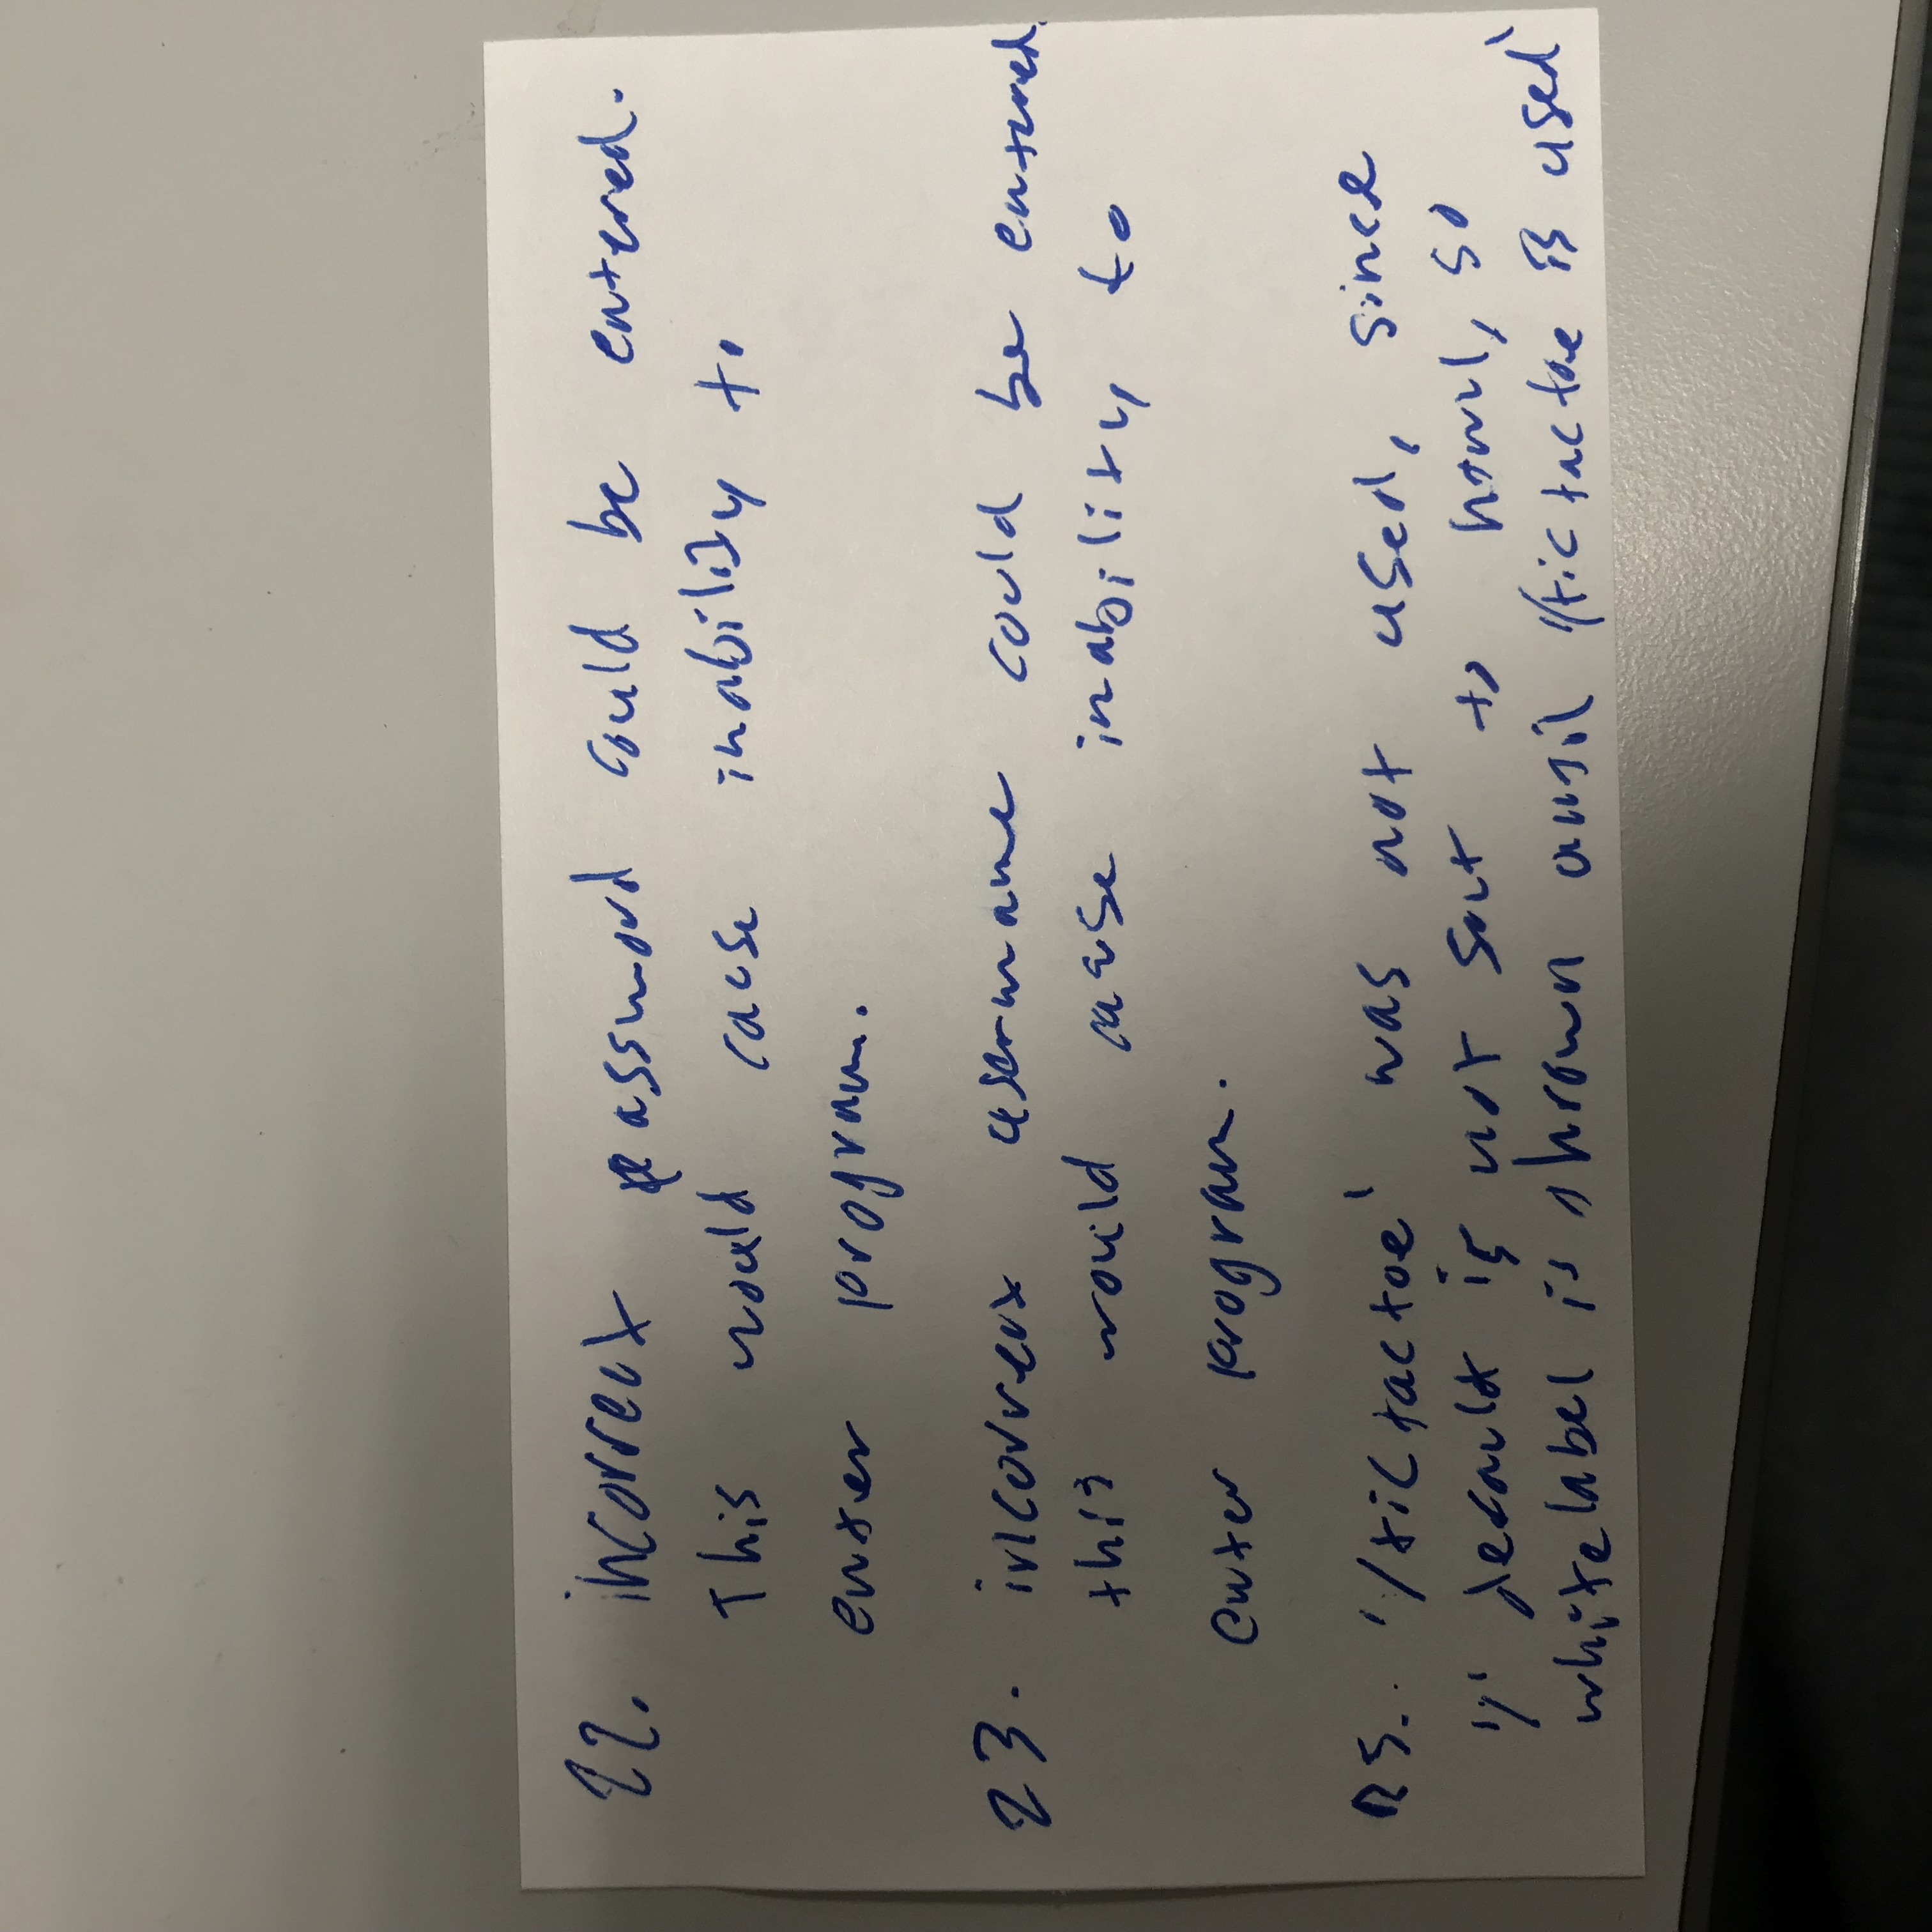 22. incorrect password could be entered.
This would cause inability to
enter program.
23. incorrect username could be entered.
this would cause inability to
enter program.
'/tictactoe' was not used, since
'/' default is not to html, so
whitelabel is until '/tictactoe is used'